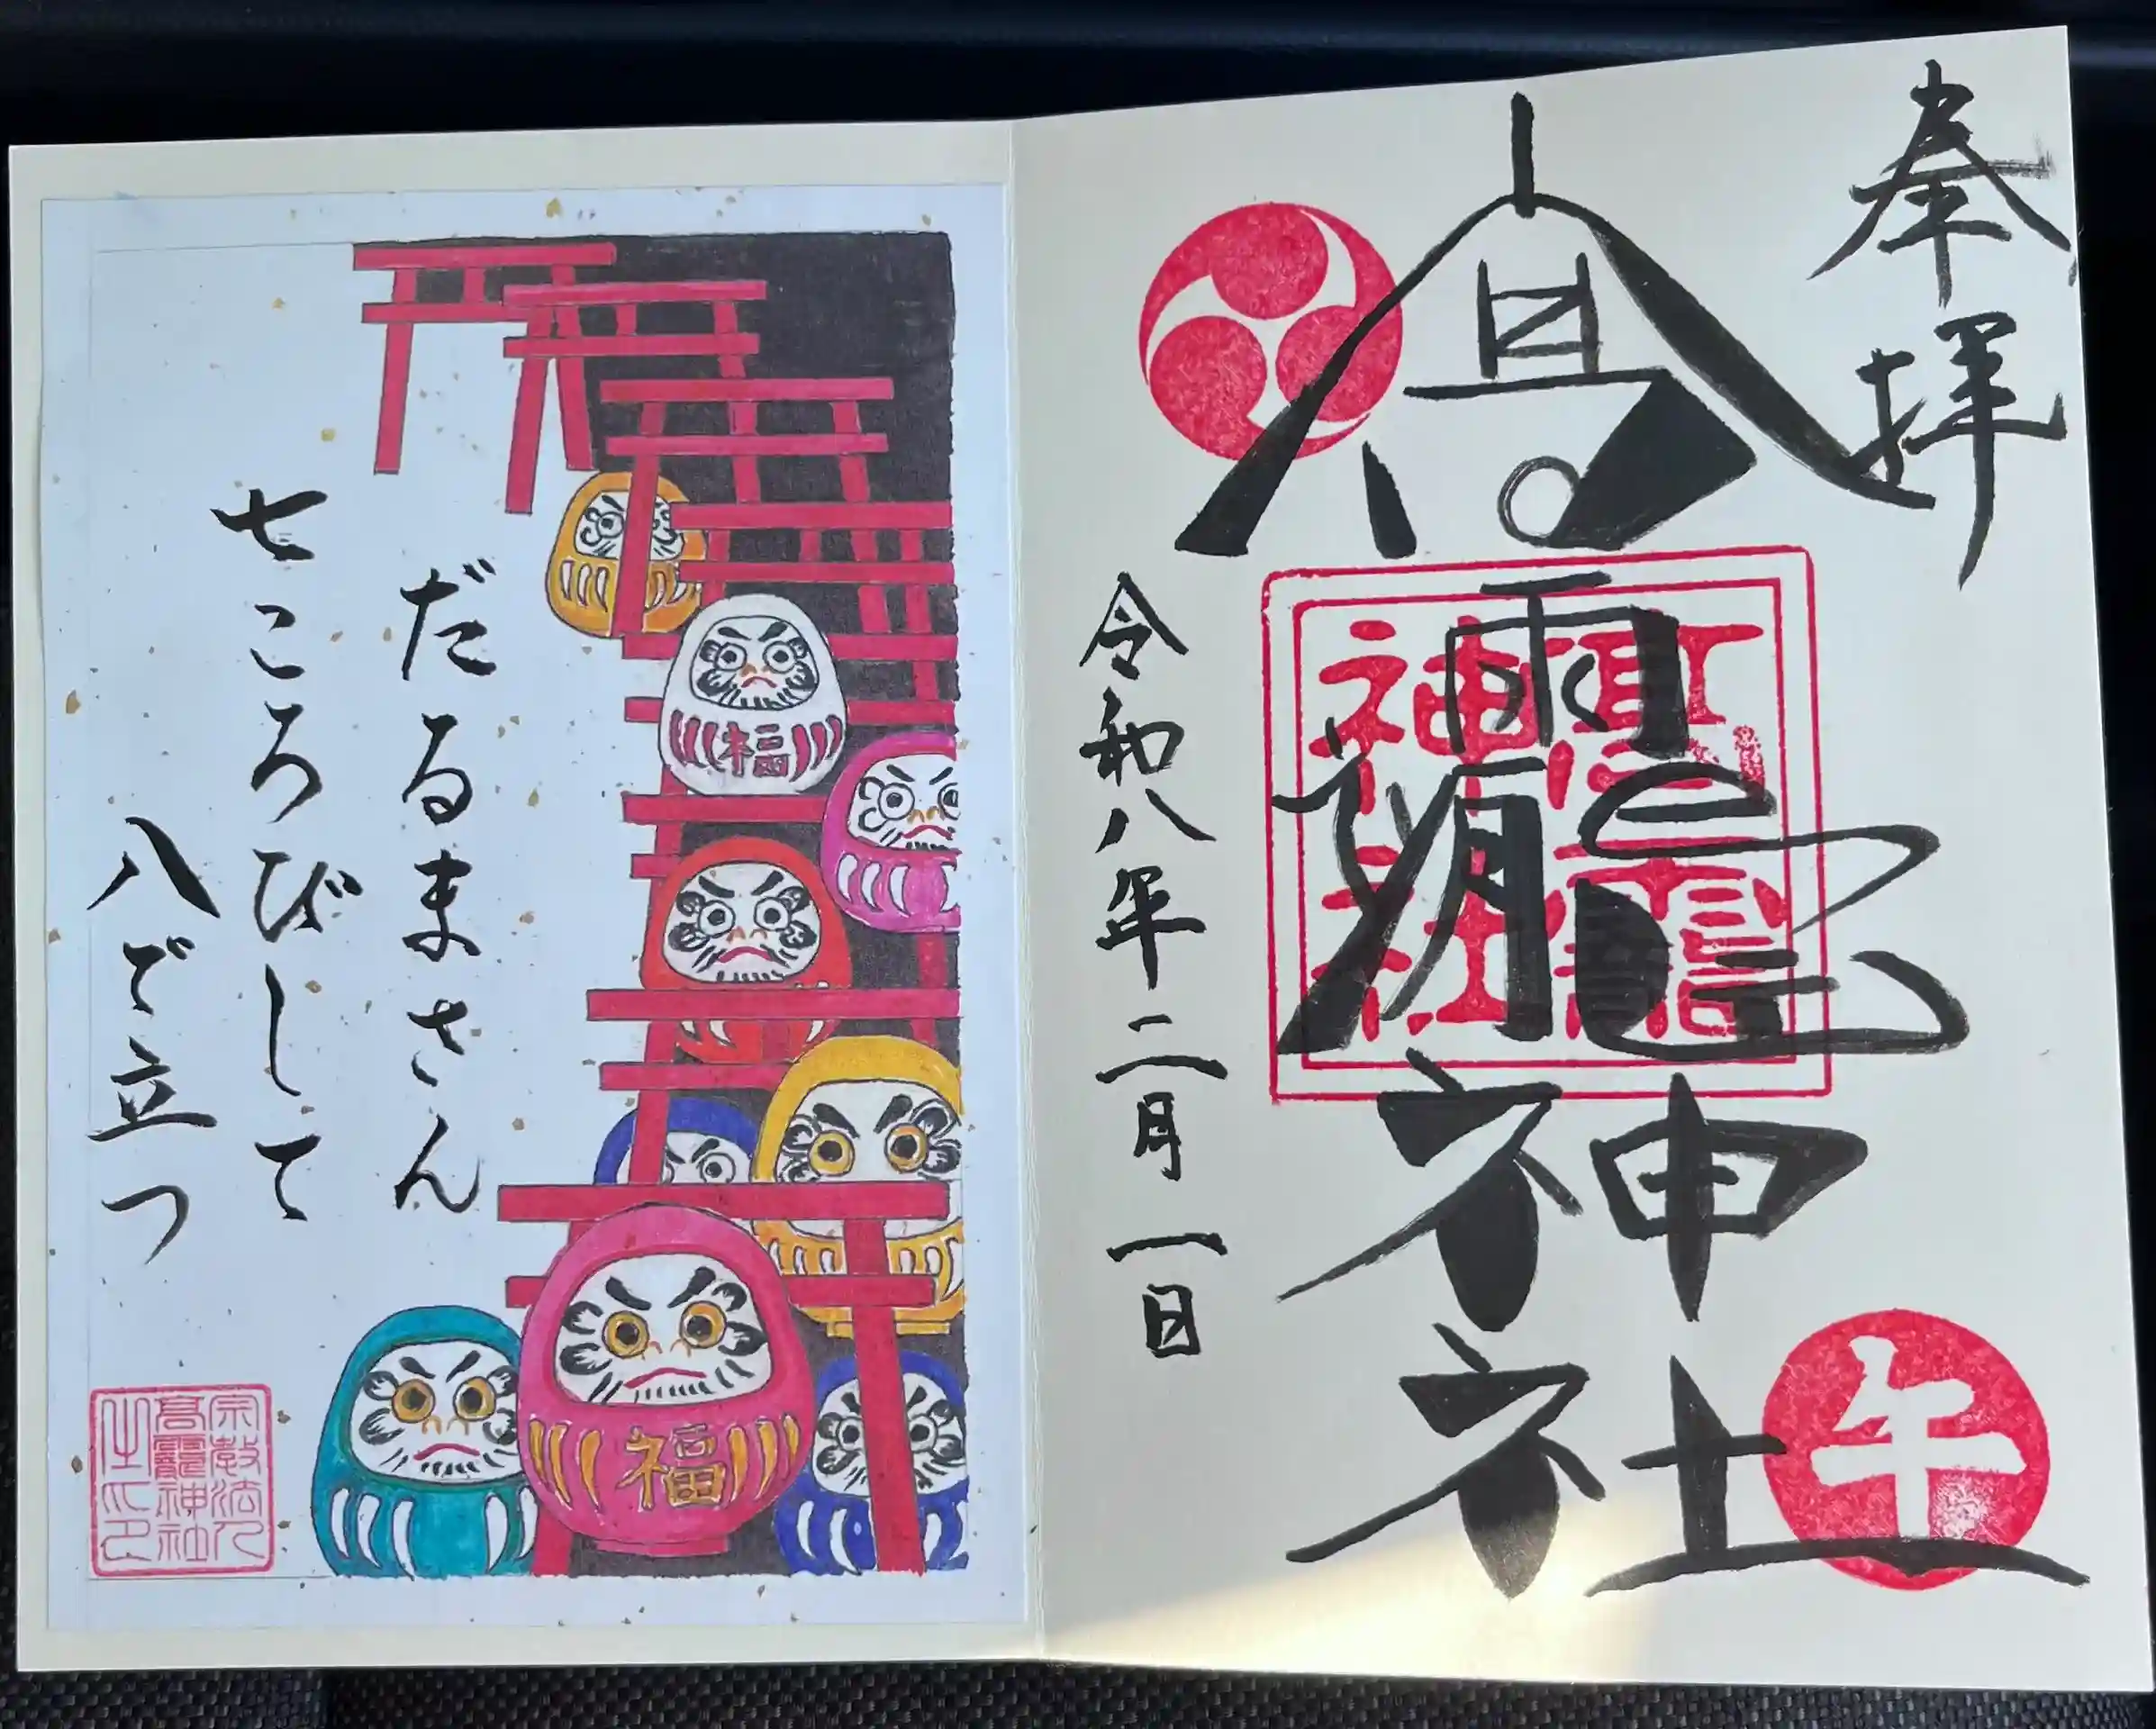 奉拝
高龗神社
午
令和八年二月一日
だるまさん
七ころびして
八で立つ
福
福
宗教法人
髙龗神社
之印